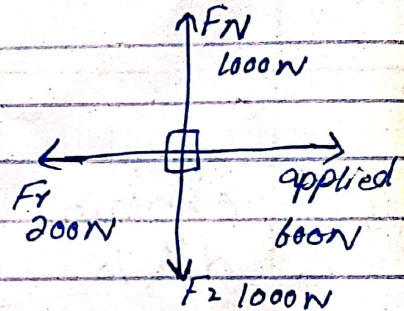 FN
1000N
Fr
200N
applied
600N
F2 1000N